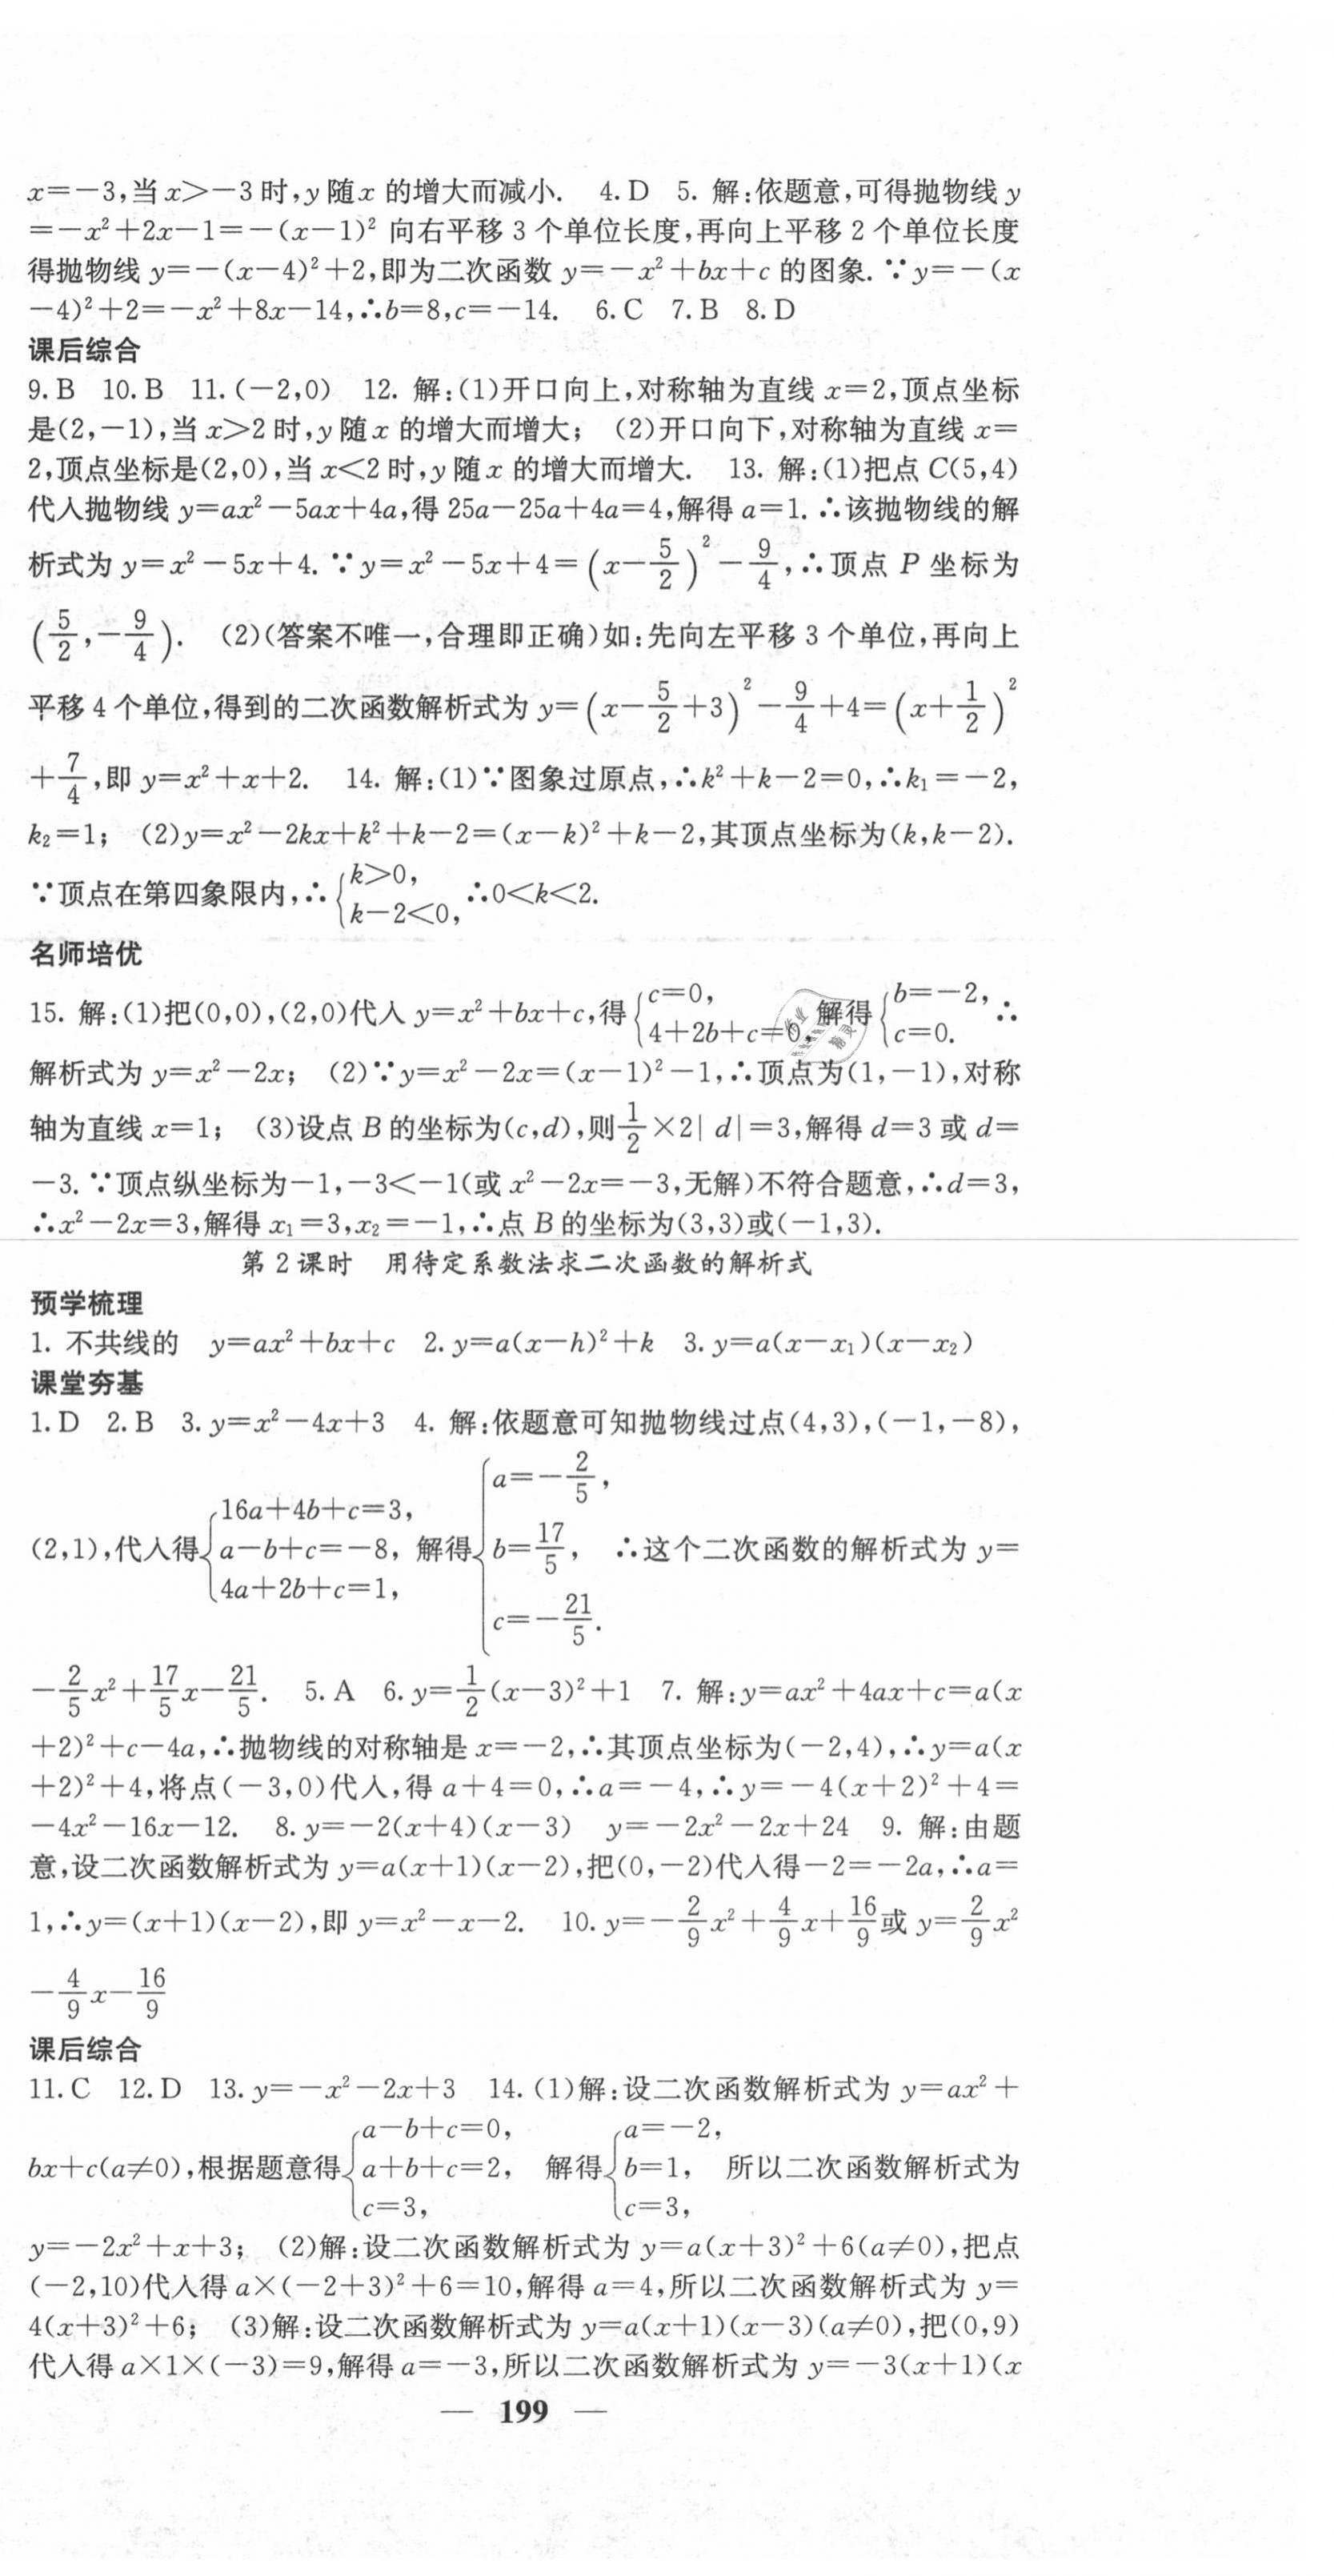 x=-3,当x>-3时,y随x的增大而减小. 4.D 5. 解:依题意,可得抛物线y
=-x²+2x-1=-(x-1)² 向右平移3个单位长度,再向上平移2个单位长度
得抛物线y=-(x-4)²+2,即为二次函数y=-x²+bx+c的图象.∵y=-(x
-4)²+2=-x²+8x-14,∴b=8,c=-14. 6.C 7.B 8.D
课后综合
9.B 10.B 11.(-2,0) 12. 解:(1)开口向上,对称轴为直线x=2,顶点坐标
是(2,-1),当x>2时,y随x的增大而增大; (2)开口向下,对称轴为直线x=
2,顶点坐标是(2,0),当x<2时,y随x的增大而增大. 13. 解:(1)把点C(5,4)
代入抛物线y=ax²-5ax+4a,得25a-25a+4a=4,解得a=1.∴该抛物线的解
析式为y=x²-5x+4.∵y=x²-5x+4=(x-5/2)²-9/4,∴顶点P坐标为
(5/2,-9/4). (2)(答案不唯一,合理即正确)如:先向左平移3个单位,再向上
平移4个单位,得到的二次函数解析式为y=(x-5/2+3)²-9/4+4=(x+1/2)²
+7/4,即y=x²+x+2. 14. 解:(1)∵图象过原点,∴k²+k-2=0,∴k₁=-2,
k₂=1; (2)y=x²-2kx+k²+k-2=(x-k)²+k-2,其顶点坐标为(k,k-2).
∵顶点在第四象限内,∴{k>0, k-2<0, ∴0<k<2.
名师培优
15. 解:(1)把(0,0),(2,0)代入y=x²+bx+c,得{c=0, 4+2b+c=0,解得{b=-2, c=0. ∴
解析式为y=x²-2x; (2)∵y=x²-2x=(x-1)²-1,∴顶点为(1,-1),对称
轴为直线x=1; (3)设点B的坐标为(c,d),则1/2×2|d|=3,解得d=3或d=
-3.∵顶点纵坐标为-1,-3<-1(或x²-2x=-3,无解)不符合题意,∴d=3,
∴x²-2x=3,解得x₁=3,x₂=-1,∴点B的坐标为(3,3)或(-1,3).
第2课时 用待定系数法求二次函数的解析式
预学梳理
1. 不共线的 y=ax²+bx+c 2.y=a(x-h)²+k 3.y=a(x-x₁)(x-x₂)
课堂夯基
1.D 2.B 3.y=x²-4x+3 4. 解:依题意可知抛物线过点(4,3),(-1,-8),
(2,1),代入得{16a+4b+c=3, a-b+c=-8, 4a+2b+c=1, 解得{a=-2/5, b=17/5, c=-21/5. ∴这个二次函数的解析式为y=
-2/5x²+17/5x-21/5. 5.A 6.y=1/2(x-3)²+1 7. 解:y=ax²+4ax+c=a(x
+2)²+c-4a,∴抛物线的对称轴是x=-2,∴其顶点坐标为(-2,4),∴y=a(x
+2)²+4,将点(-3,0)代入,得a+4=0,∴a=-4,∴y=-4(x+2)²+4=
-4x²-16x-12. 8.y=-2(x+4)(x-3) y=-2x²-2x+24 9. 解:由题
意,设二次函数解析式为y=a(x+1)(x-2),把(0,-2)代入得-2=-2a,∴a=
1,∴y=(x+1)(x-2),即y=x²-x-2. 10.y=-2/9x²+4/9x+16/9或y=2/9x²
-4/9x-16/9
课后综合
11.C 12.D 13.y=-x²-2x+3 14.(1)解:设二次函数解析式为y=ax²+
bx+c(a≠0),根据题意得{a-b+c=0, a+b+c=2, c=3, 解得{a=-2, b=1, c=3, 所以二次函数解析式为
y=-2x²+x+3; (2)解:设二次函数解析式为y=a(x+3)²+6(a≠0),把点
(-2,10)代入得a×(-2+3)²+6=10,解得a=4,所以二次函数解析式为y=
4(x+3)²+6; (3)解:设二次函数解析式为y=a(x+1)(x-3)(a≠0),把(0,9)
代入得a×1×(-3)=9,解得a=-3,所以二次函数解析式为y=-3(x+1)(x
— 199 —